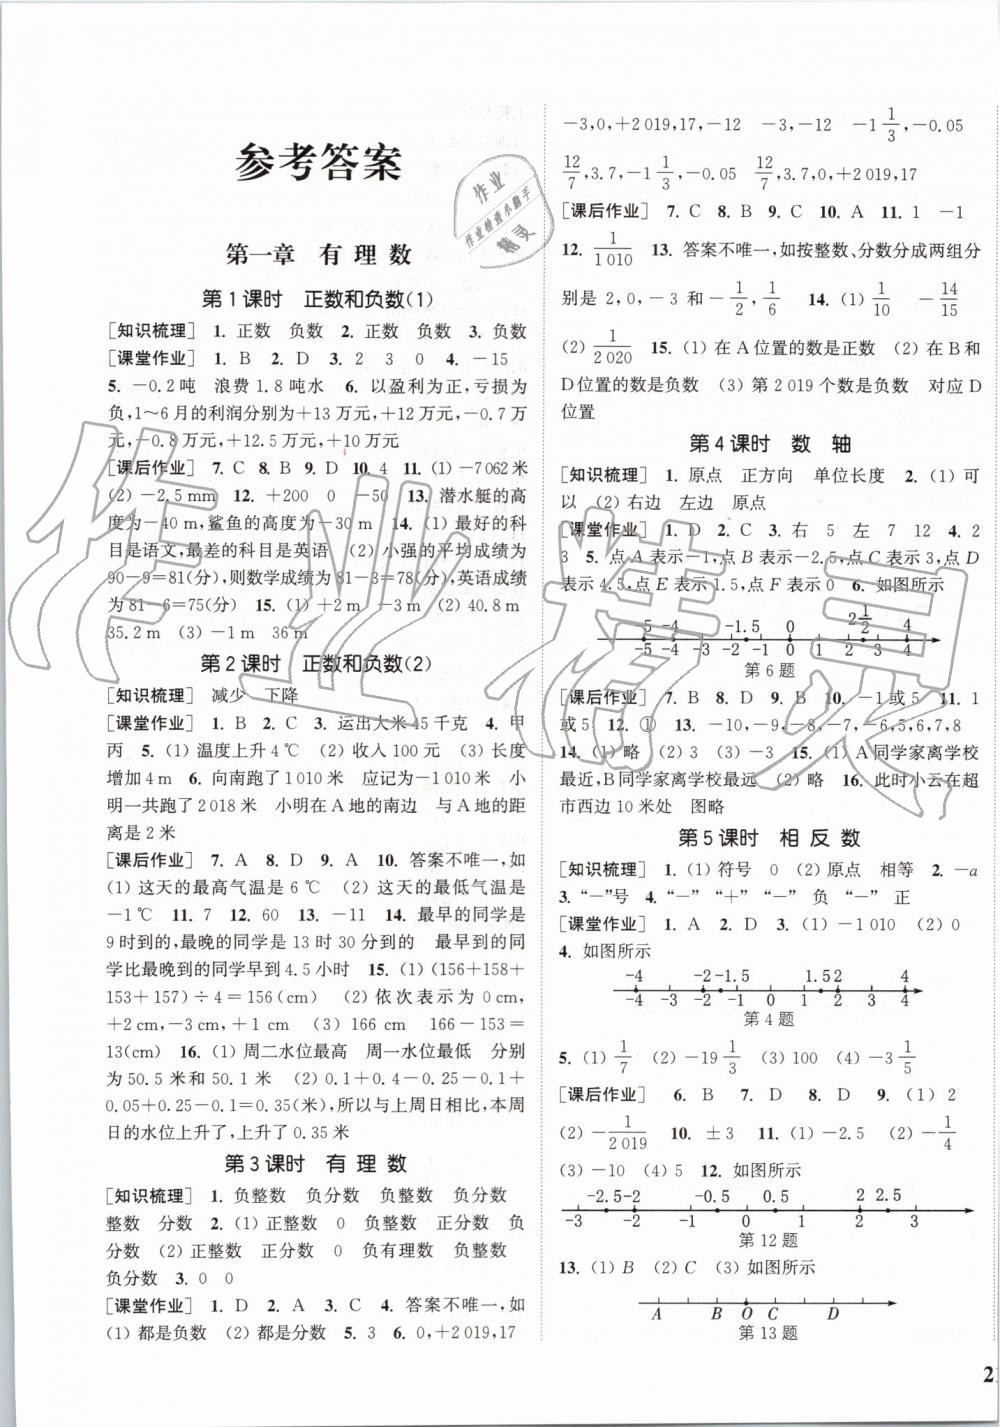 参考答案
第一章 有理数
第1课时 正数和负数(1)
[知识梳理] 1. 正数 负数 2. 正数 负数 3. 负数
[课堂作业] 1. B 2. D 3. 2 3 0 4. －15
5. －0.2吨 浪费1.8吨水 6. 以盈利为正,亏损为
负,1～6月的利润分别为＋13万元,＋12万元,－0.7万
元,－0.8万元,＋12.5万元,＋10万元
[课后作业] 7. C 8. B 9. D 10. 4 11. (1) －7 062米
(2) －2.5 mm 12. ＋200 0 －50 13. 潜水艇的高
度为－40 m,鲨鱼的高度为－30 m 14. (1) 最好的科
目是语文,最差的科目是英语 (2) 小强的平均成绩为
90－9＝81(分),则数学成绩为81－3＝78(分),英语成绩
为81－6＝75(分) 15. (1) ＋2 m －3 m (2) 40.8 m
35.2 m (3) －1 m 36 m
第2课时 正数和负数(2)
[知识梳理] 减少 下降
[课堂作业] 1. B 2. C 3. 运出大米45千克 4. 甲
丙 5. (1) 温度上升4℃ (2) 收入100元 (3) 长度
增加4 m 6. 向南跑了1 010米 应记为－1 010米 小
明一共跑了2 018米 小明在A地的南边 与A地的距
离是2米
[课后作业] 7. A 8. B 9. A 10. 答案不唯一,如
(1) 这天的最高气温是6 ℃ (2) 这天的最低气温是
－1 ℃ 11. 7 12. 60 13. －11 14. 最早的同学是
9时到的,最晚的同学是13时30分到的 最早到的同
学比最晚到的同学早到4.5小时 15. (1) (156＋158＋
153＋157)÷4＝156(cm) (2) 依次表示为0 cm,
＋2 cm,－3 cm,＋1 cm (3) 166 cm 166－153＝
13(cm) 16. (1) 周二水位最高 周一水位最低 分别
为50.5米和50.1米 (2) 0.1＋0.4－0.2－0.1＋
0.05＋0.25－0.1＝0.35(米),所以与上周日相比,本周
日的水位上升了,上升了0.35米
第3课时 有理数
[知识梳理] 1. 负整数 负分数 负整数 负分数
整数 分数 2. (1) 正整数 0 负整数 正分数 负
分数 (2) 正整数 正分数 0 负有理数 负整数
负分数 3. 0 0
[课堂作业] 1. D 2. A 3. C 4. 答案不唯一,如
(1) 都是负数 (2) 都是分数 5. 3 6. 0,＋2 019,17
－3,0,＋2 019,17,－12 －3,－12 －1 1/3,－0.05
12/7,3.7,－1 1/3,－0.05 12/7,3.7,0,＋2 019,17
[课后作业] 7. C 8. B 9. C 10. A 11. 1 －1
12. 1/1 010 13. 答案不唯一,如按整数、分数分成两组分
别是2,0,－3和－1/2,1/6 14. (1) 1/10 －14/15
(2) 1/2 020 15. (1) 在A位置的数是正数 (2) 在B和
D位置的数是负数 (3) 第2 019个数是负数 对应D
位置
第4课时 数轴
[知识梳理] 1. 原点 正方向 单位长度 2. (1) 可
以 (2) 右边 左边 原点
[课堂作业] 1. D 2. C 3. 右 5 左 7 12 4. 2
3 5. 点A表示－1,点B表示－2.5,点C表示3,点D
表示4.5,点E表示1.5,点F表示0 6. 如图所示
－5 －4 －1.5 0 2 1/2 4
－5 －4 －3 －2 －1 0 1 2 3 4
第6题
[课后作业] 7. B 8. D 9. B 10. －1或5 11. 1
或5 12. ① 13. －10,－9,－8,－7,－6,5,6,7,8
14. (1) 略 (2) 3 (3) －3 15. (1) A同学家离学校
最近,B同学家离学校最远 (2) 略 16. 此时小云在超
市西边10米处 图略
第5课时 相反数
[知识梳理] 1. (1) 符号 0 (2) 原点 相等 2. －a
3. “－”号 4. “－” “＋” “－” 负 “－” 正
[课堂作业] 1. A 2. D 3. (1) －1 010 (2) 0
4. 如图所示
－4 －2 －1.5 1.5 2 4
－4 －3 －2 －1 0 1 2 3 4
第4题
5. (1) 1/7 (2) －19 1/3 (3) 100 (4) －3 1/5
[课后作业] 6. B 7. D 8. D 9. (1) 2
(2) －1/2 019 10. ±3 11. (1) －2.5 (2) －1/4
(3) －10 (4) 5 12. 如图所示
－2.5 －2 －0.5 0.5 2 2.5
－3 －2 －1 0 1 2 3
第12题
13. (1) B (2) C (3) 如图所示
A B O C D
第13题
作业
作业检查小助手
精灵
作业精灵